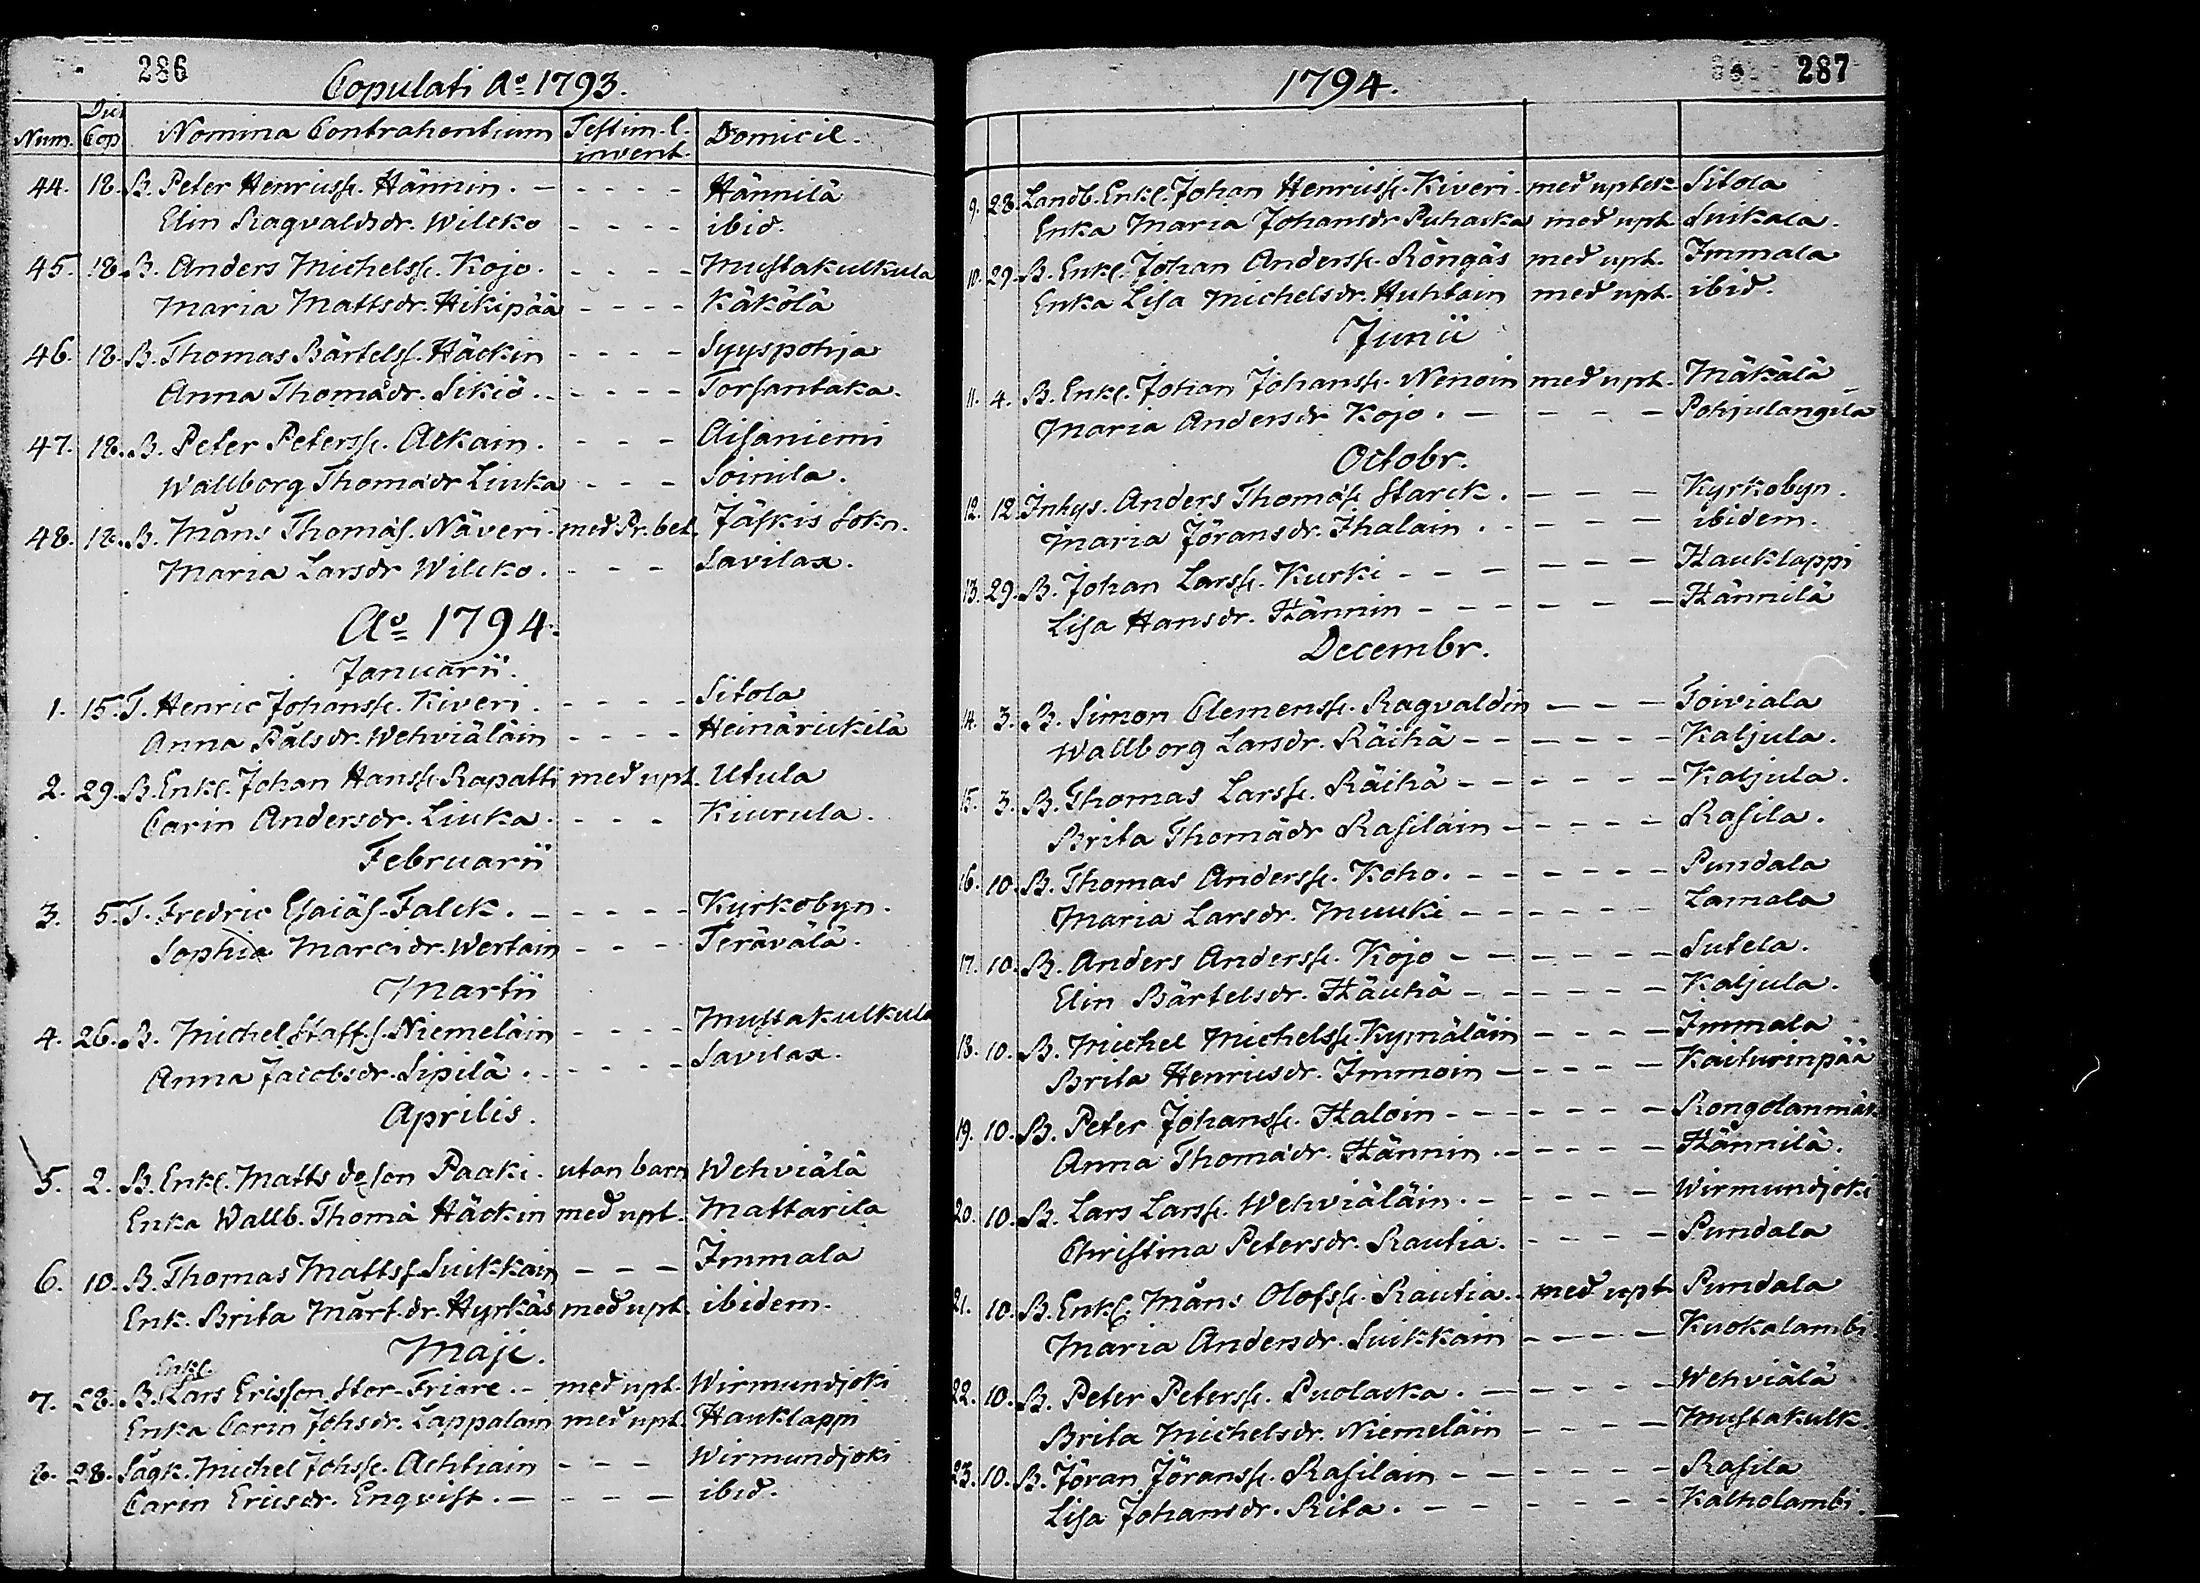 286
Copulati Aº 1793.
Num. Die Cop Nomina Contrahentium Testim. l. invent. Domicil.
44. 18. B. Peter Henricss. Hännin. - - - - - Hännilä
Elin Ragvaldsdr. Wilcko - - - - ibid.
45. 18. B. Anders Michelss. Kojo. - - - - Mustakulkula
Maria Mattsdr. Hikipää - - - - Käkölä
46. 18. B. Thomas Bärtelss. Häckin - - - - Syyspohja
Anna Thomädr. Sikiö. - - - - - Torsantaka.
47. 18. B. Peter Peterss. Ackain. - - - Aisaniemi
Wallborg Thomädr Liuka - - - Soinila.
48. 18. B. Måns Thomäs. Näveri - med Pr. bet. Jäskis Sokn.
Maria Larsdr Wilcko. - - - Savilax.
Aº 1794.
Januarii.
1. 15. T. Henric Johanss. Kiveri. - - - - Sitola
Anna Pålsdr. Wehviäläin - - - - Heinäriukilä
2. 29. B. Enkl. Johan Hanss. Rapatti med upt. Utula
Carin Andersdr. Liuka. - - - Kiurula.
Februarii
3. 5. T. Fredric Esaiäs. Falck. - - - - - Kyrkobyn.
Sophia Marcidr. Wertain - - - Terävälä.
Martii
4. 26. B. Michel Staffs. Niemeläin - - - - Mustakulkula
Anna Jacobsdr. Sipilä. - - - - - Savilax.
Aprilis.
5. 2. B. Enkl. Matts deson Paaki. utan barn Wehviälä
Enka Wallb. Thomä Häckin med upt. Mattarila
6. 10. B. Thomas Mattss. Suikkain - - - Immala
Enk. Brita Mårt. dr. Hyrkäs med upt. ibidem.
Maji.
Enkl.
7. 28. B. Lars Ericsson Stor-Friare. - med upt. Wirmundjoki
Enka Carin Johsdr. Lappalain med upt. Hauklappi
8. 28. Sågk. Michel Johss. Achtiain - - - Wirmundjoki
Carin Ericsdr. Enqvist. - - - - ibid.
287
1794.
9. 28. Landb. Enkl. Johan Henricss. Kiveri - med uptek. Sitola
Enka Maria Johansdr Puhacka med upt. Suikala.
10. 29. B. Enkl. Johan Anderss. Röngäs med upt. Immala
Enka Lisa Michelsdr. Huhtain med upt. ibid.
Junii
11. 4. B. Enkl. Johan Johanss. Nenoin med upt. Mäkälä
Maria Andersdr Kojo. - - - - Pohjulangila
Octobr.
12. 12. Inhys. Anders Thomäss Starck. - - - Kyrkobyn.
Maria Jöransdr. Ihalain. - - - - ibidem.
13. 29. B. Johan Larss. Kurki - - - - - - Hauklappi
Lisa Hansdr. Hännin - - - - - - Hännilä
Decembr.
14. 3. B. Simon Clemenss. Ragvaldin - - - Toiviala
Wallborg Larsdr. Räihä - - - - - - Kaljula.
15. 3. B. Thomas Larss. Räihä - - - - - - Kaljula.
Brita Thomädr Rasilain - - - - - Rasila.
16. 10. B. Thomas Anderss. Koho. - - - - - - Pundala
Maria Larsdr. Muuki - - - - - - Lamala
17. 10. B. Anders Anderss. Kojo - - - - - - Sutela.
Elin Bärtelsdr. Häuhä - - - - - - Kaljula.
18. 10. B. Michel Michelss. Kymäläin - - - - Immala
Brita Henricsdr. Immoin - - - - - Kaiturinpää
19. 10. B. Peter Johanss. Haloin - - - - - - - Rongolanmäk
Anna Thomädr. Hännin. - - - - - Hännilä.
20. 10. B. Lars Larss. Wehviäläin. - - - - - Wirmundjoki
Christina Petersdr. Rautia. - - - - Pundala
21. 10. B. Enkl. Måns Olofss. Rautia. - med upt. Pundala
Maria Andersdr. Suikkain - - - - Kuokalambi
22. 10. B. Peter Peterss. Puolacka. - - - - - Wehviälä
Brita Michelsdr. Niemeläin - - - - Mustakulk.
23. 10. B. Jöran Jöranss. Rasilain - - - - - - Rasila
Lisa Johansdr. Rita. - - - - - - - Kalholambi.